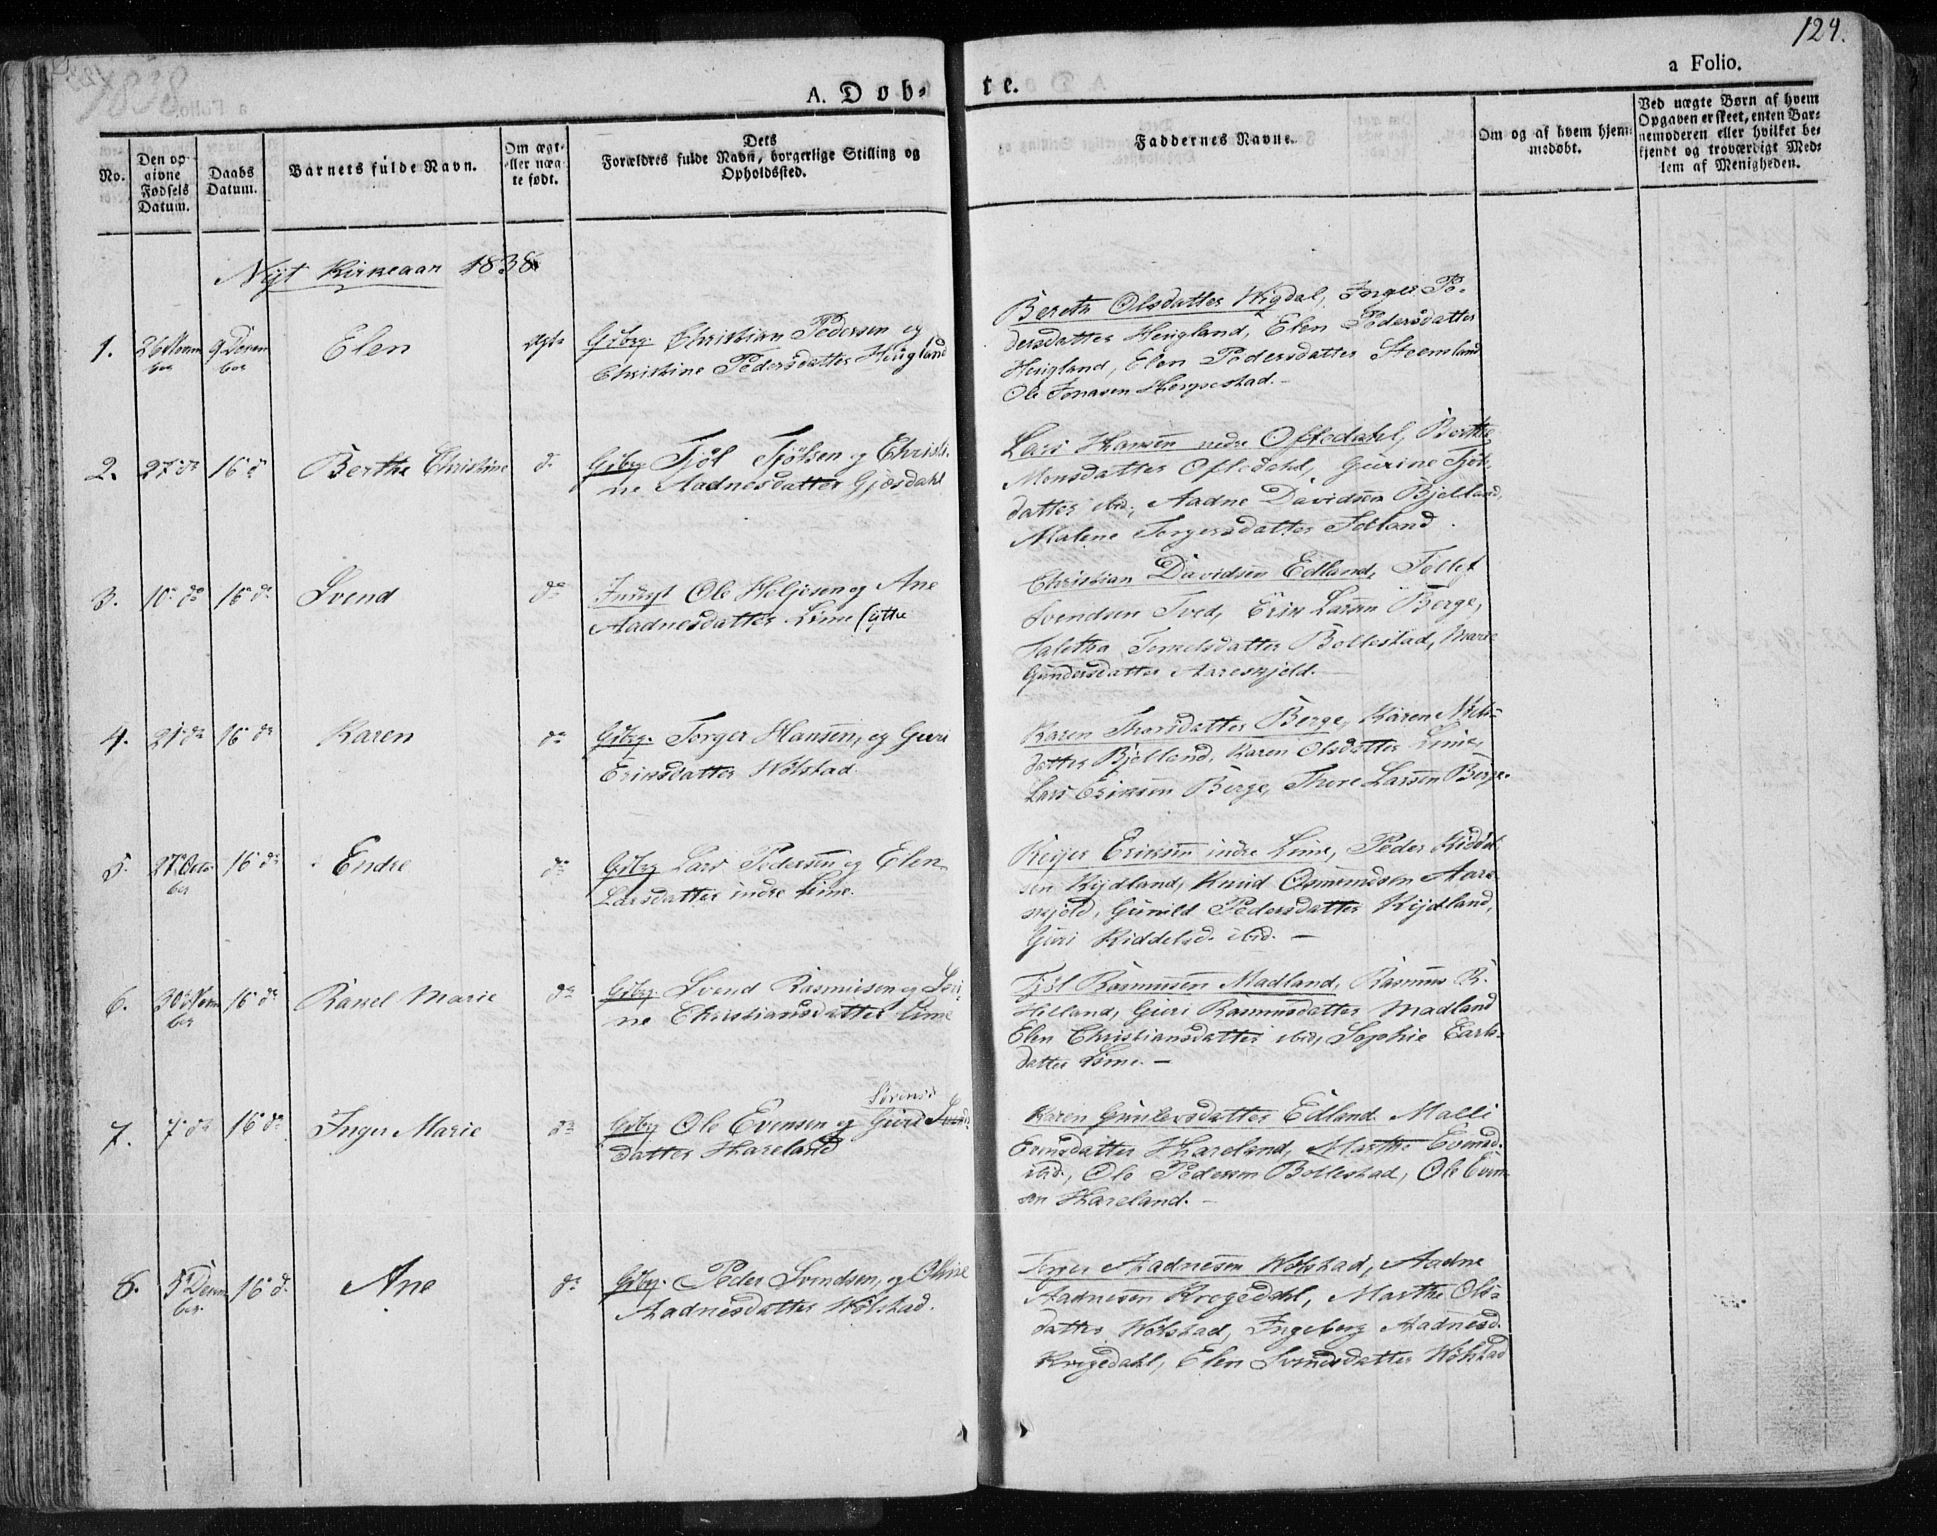 124.
1838
a Folio.
A. Døb-
te.
No.
Den op-
givne
Fødsels
Datum.
Daabs
Datum.
Barnets fulde Navn.
Om ægt-
eller uæg-
te født.
Dets
Forældres fulde Navn, borgerlige Stilling og
Opholdssted.
Faddernes Navne.
Om og af hvem hjem-
medøbt.
Ved uægte Børn af hvem
Opgaven er skeet, enten Bar-
nemoderen eller hvilket be-
kjendt og troværdigt Med-
lem af Menigheden.
Nyt Kirkeaar 1838
1.
26 Novem
ber
9. Decem
ber
Elen
Ægte
Gibrg. Christian Pedersen og
Christine Pedersdatter Heugland
Bereth Olsdatter Wigdal, Inger Pe-
dersdatter Heugland, Elen Pedersdatter
Heugland, Elen Pedersdatter Steensland
Ole Jonasen Horpestad. -
2.
27 do
16 d
Berthe Christine
do
Gibrg Tjöl Tjölsen og Christi-
ne Aadnesdatter Gjesdahl
Lars Hansen nedre Oftedahl, Berthe
Monsdatter Oftedahl, Gurine Tjöls
datter ibid, Aadne Davidsen Bjelland,
Malene Torgersdatter Sæland.
3.
10 do
16 d.
Svend
do
Indrgt Ole Helgesen og Ane
Aadnesdatter Lime (ytre
Christian Davidsen Edland, Tollef
Svendsen Tved, Erik Larsen Berge,
Taletha Tønnesdatter Bollestad, Marie
Gundersdatter Aareskjold. -
4.
21 do
16 do
Karen
do
Gibrg. Torger Hansen, og Guri
Eriksdatter Wølstad.
Karen Thoresdatter Berge, Karen Nils-
datter Bjelland, Karen Olsdatter Lime,
Lars Eriksen Berge, Thore Larsen Berge.
5.
27 Octo
ber
16 do
Endre
do
Gibrg Lars Pedersen og Elen
Larsdatter indre Lime.
Reijer Eriksen indre Lime, Peder Kiddel
sen Kydland, Knud Osmundsen Aare-
skjold, Gunild Pedersdatter Kydland,
Guri Kiddelsd. ibid. -
6.
30 Novem
ber
16 do
Rakel Marie
do
Gibrg. Svend Rasmusen og Seri-
ne Christiansdatter Lime
Tjöl Rasmusen Madland, Rasmus R.
Hilland, Guri Rasmusdatter Madland
Elen Christiansdatter ibid, Sophie Carls-
datter Lime. -
7.
7 do
16 do
Inger Marie
do
Sörens
Gibrg Ole Evensen og Guri Svends
datter Hareland
Karen Gunlevsdatter Edland. Malli
Evensdatter Hareland, Marthe Evensd.
ibid, Ole Pedersen Bollestad, Ole Even
sen Hareland. -
8.
5 Decem
ber
16 d.
Ane
do
Gibrg. Peder Svendsen, og Oline
Aadnesdatter Wølstad.
Torger Aadnesen Wølstad, Aadne
Aadnesen Krogedahl, Marthe Ols-
datter Wølstad, Ingeborg Aadnesd.
Krogedahl, Elen Svendsdatter Wølstad